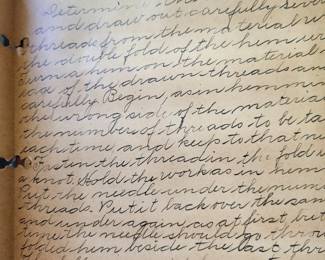 Determine the
and draw out carefully seve
threads from the material
the double fold of the hem
turn a hem on the material
edge of the drawn threads an
carefully. Begin, as in hemmin
the wrong side of the materia
the number of threads to be ta
each time and keep to that nu
Fasten the thread in the fold
a knot. Hold the work as in hem
Put the needle under the num
threads. Put it back over the sam
and under again, as at first, but
time the needle should go thro
folded hem beside the last thr